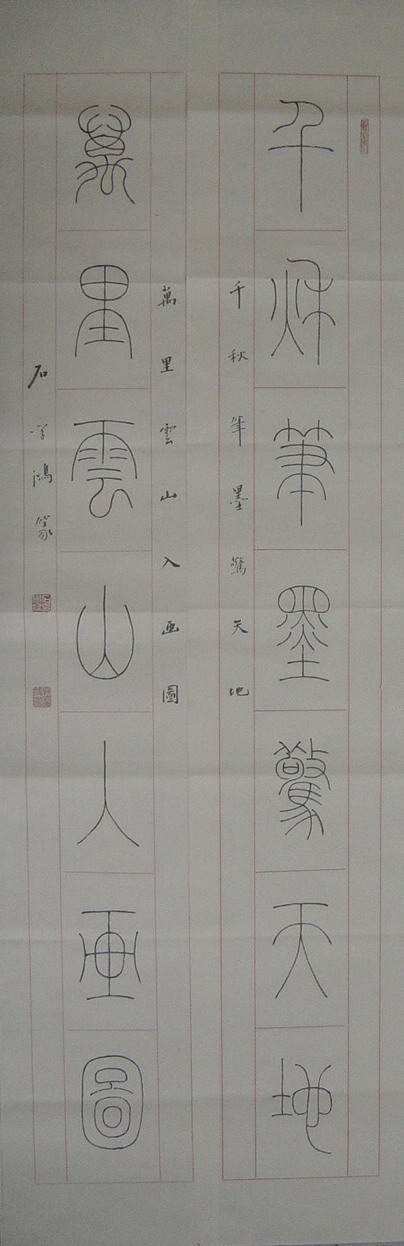 千秋筆墨驚天地
千秋筆墨驚天地
萬里雲山入画圖
萬里雲山入画圖
石学鴻篆